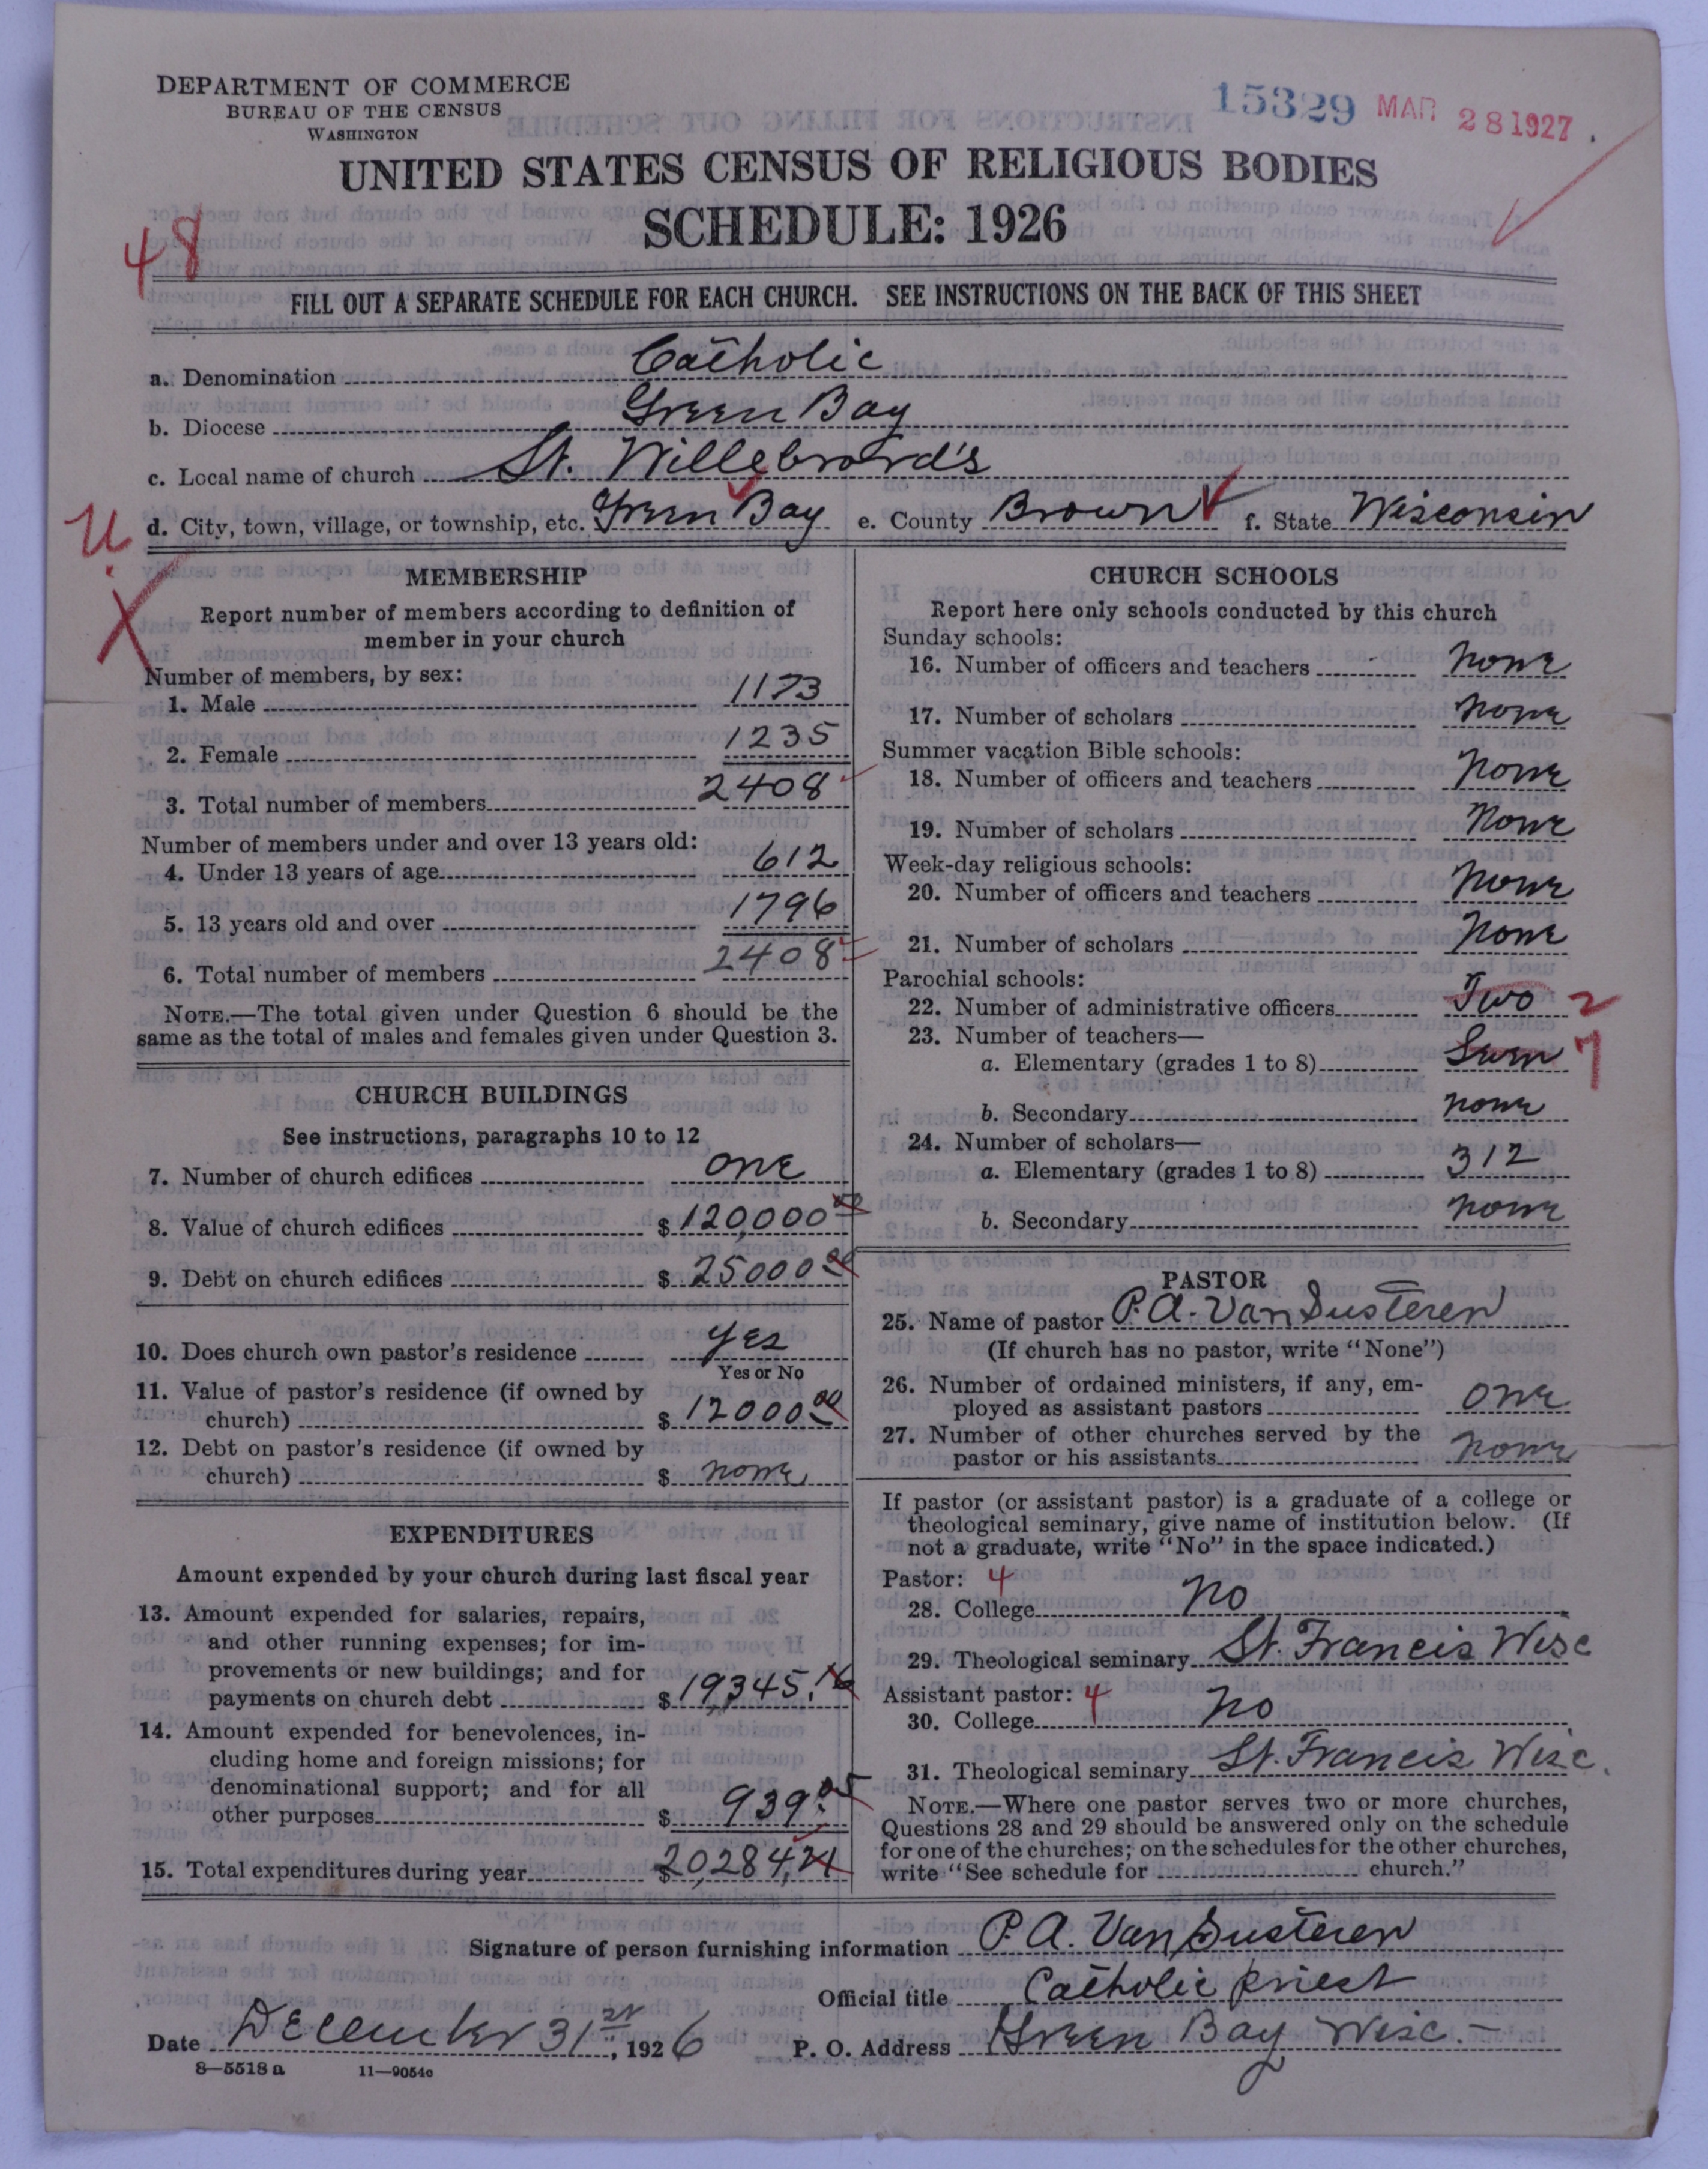 DEPARTMENT OF COMMERCE
BUREAU OF THE CENSUS
WASHINGTON
15329 MAR 28 1927
UNITED STATES CENSUS OF RELIGIOUS BODIES
SCHEDULE: 1926
48
FILL OUT A SEPARATE SCHEDULE FOR EACH CHURCH. SEE INSTRUCTIONS ON THE BACK OF THIS SHEET
a. Denomination Catholic
b. Diocese Green Bay
c. Local name of church St. Willebrord's
d. City, town, village, or township, etc. Green Bay e. County Brown f. State Wisconsin
U.
X
MEMBERSHIP
Report number of members according to definition of
member in your church
Number of members, by sex:
1. Male 1173
2. Female 1235
3. Total number of members 2408
Number of members under and over 13 years old:
4. Under 13 years of age 612
5. 13 years old and over 1796
6. Total number of members 2408
NOTE.—The total given under Question 6 should be the
same as the total of males and females given under Question 3.
CHURCH BUILDINGS
See instructions, paragraphs 10 to 12
7. Number of church edifices one
8. Value of church edifices $ 120,000 00
9. Debt on church edifices $ 25000 00
10. Does church own pastor's residence yes
Yes or No
11. Value of pastor's residence (if owned by
church) $ 12000 00
12. Debt on pastor's residence (if owned by
church) $ none
EXPENDITURES
Amount expended by your church during last fiscal year
13. Amount expended for salaries, repairs,
and other running expenses; for im-
provements or new buildings; and for
payments on church debt $ 19,345.16
14. Amount expended for benevolences, in-
cluding home and foreign missions; for
denominational support; and for all
other purposes $ 939.05
15. Total expenditures during year $ 20,284.21
CHURCH SCHOOLS
Report here only schools conducted by this church
Sunday schools:
16. Number of officers and teachers none
17. Number of scholars none
Summer vacation Bible schools:
18. Number of officers and teachers none
19. Number of scholars none
Week-day religious schools:
20. Number of officers and teachers none
21. Number of scholars none
Parochial schools:
22. Number of administrative officers Two 2
23. Number of teachers—
a. Elementary (grades 1 to 8) Seven 7
b. Secondary none
24. Number of scholars—
a. Elementary (grades 1 to 8) 312
b. Secondary none
PASTOR
25. Name of pastor P. A. Van Susteren
(If church has no pastor, write "None")
26. Number of ordained ministers, if any, em-
ployed as assistant pastors one
27. Number of other churches served by the
pastor or his assistants none
If pastor (or assistant pastor) is a graduate of a college or
theological seminary, give name of institution below. (If
not a graduate, write "No" in the space indicated.)
Pastor: 4
28. College no
29. Theological seminary St. Francis Wisc
Assistant pastor: 4
30. College no
31. Theological seminary St. Francis Wisc.
NOTE.—Where one pastor serves two or more churches,
Questions 28 and 29 should be answered only on the schedule
for one of the churches; on the schedules for the other churches,
write "See schedule for church."
Signature of person furnishing information P. A. Van Susteren
Official title Catholic Priest
Date December 31st, 1926 P. O. Address Green Bay Wisc.—
8—5518 a 11—9054c